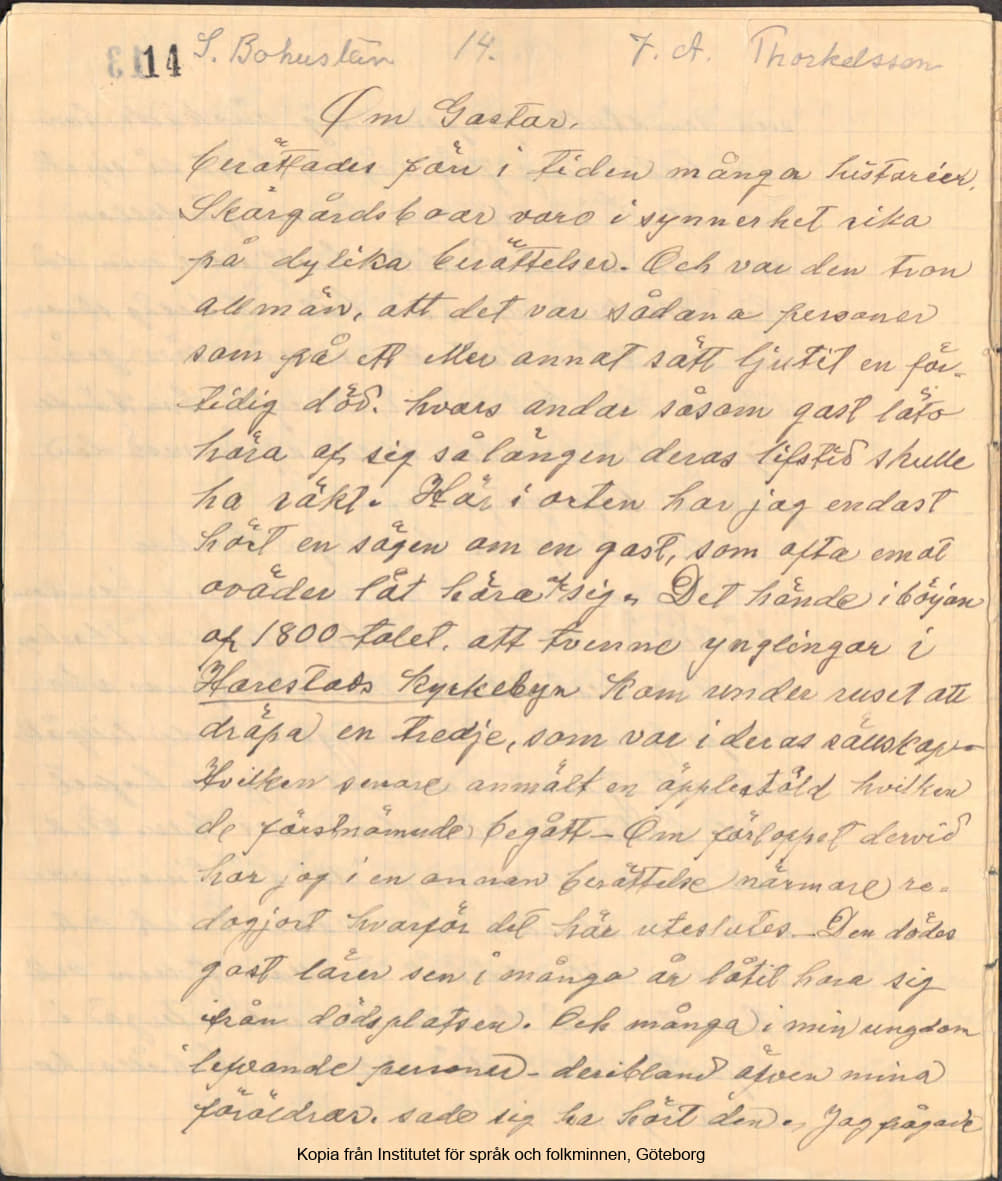 14 S. Bohuslän 14. J. A. Thorkelsson
Om Gastar,
berättades förr i tiden många historier.
Skärgårdsboar voro i synnerhet rika
på dylika berättelser. Och var den tron
allmän, att det var sådana personer
som på ett eller annat sätt ljutit en för-
tidig död. hvars andar såsom gast läto
höra af sig så längen deras lifstid skulle
ha räkt. Här i orten har jag endast
hört en sägen om en gast, som ofta emot
oväder låt höra af sig. Det hände i böijan
af 1800-talet. att tvenne ynglingar i
Harestads Kyrkebyn kom under ruset att
dräpa en tredje, som var i deras sällskap—
Hvilken senare anmält en äpplestöld hvilken
de förstnämnde begått— Om förloppet dervid
har jag i en annan berättelse närmare re-
dogjort hvarför det här uteslutes.— Den dödes
gast lärer sen i många år låtit höra sig
ifrån dödsplatsen. Och många i min ungdom
lefvande personer— deribland äfven mina
föräldrar. sade sig ha hört den. Jag frågade
Kopia från Institutet för språk och folkminnen, Göteborg